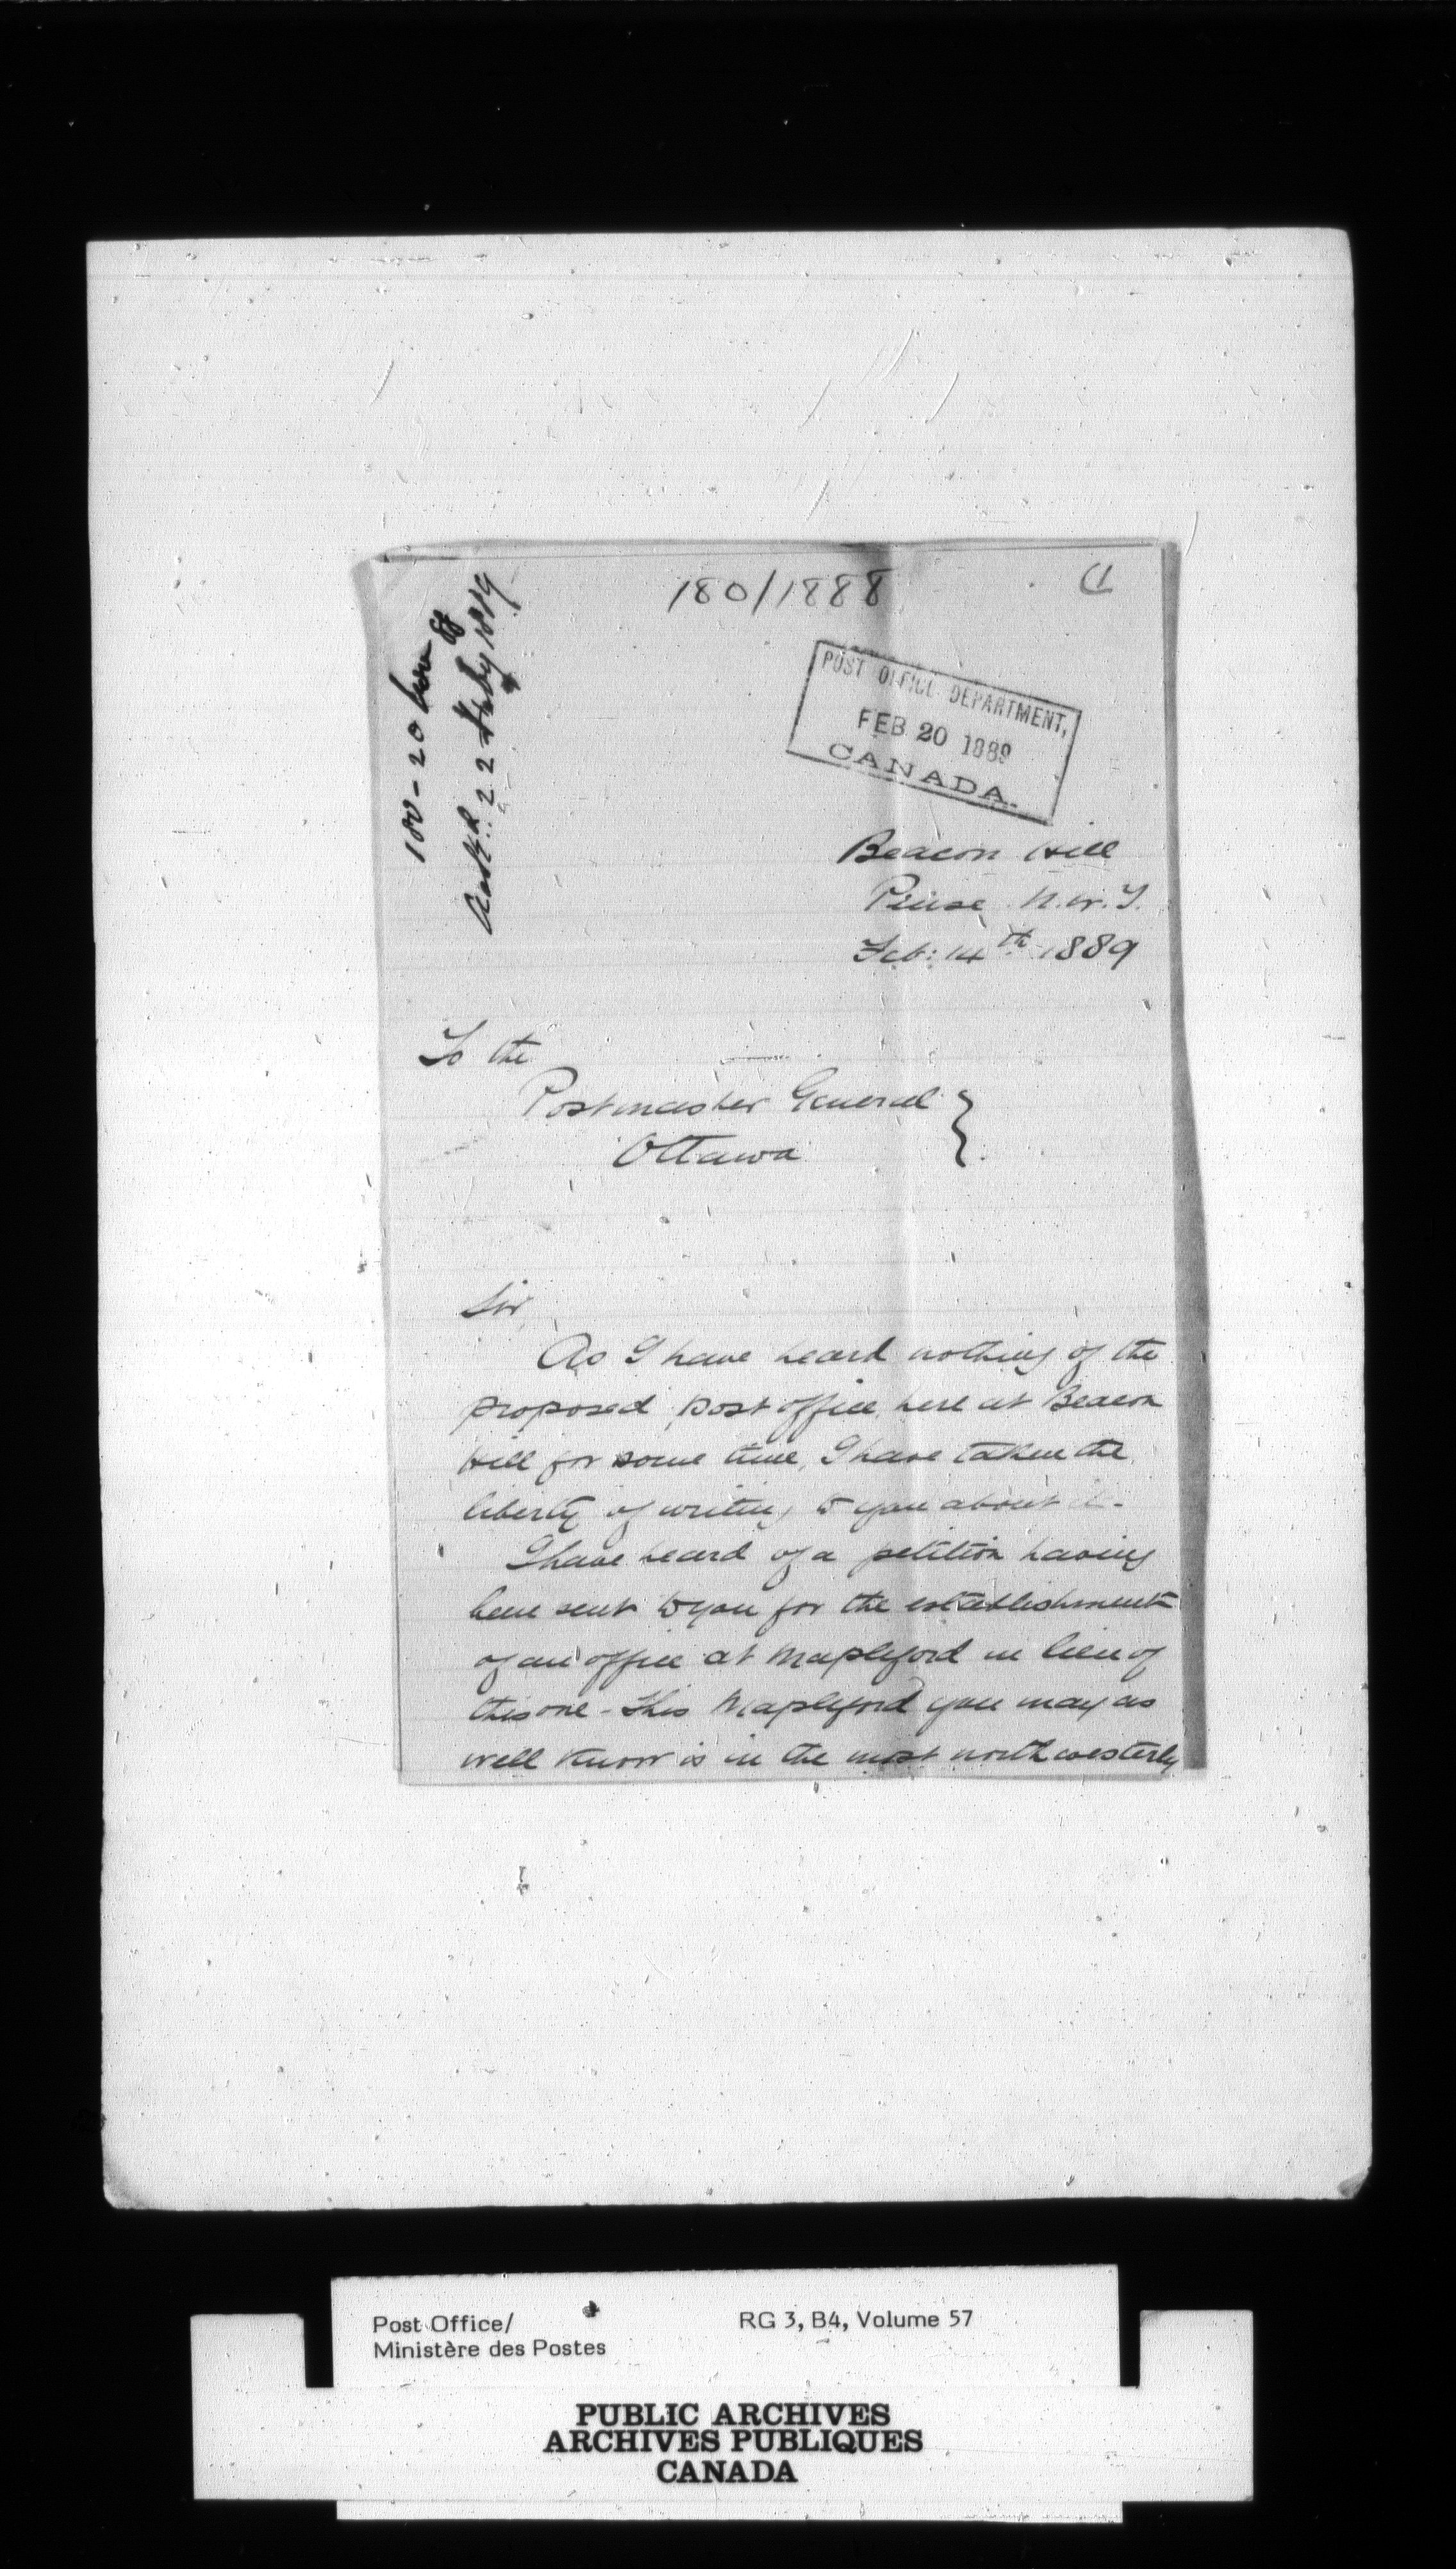 180/1888
180-20 Nov 88
22 Feby 1889
POST OFFICE DEPARTMENT,
FEB 20 1889
CANADA.
Beacon Hill
Pense N.W.T.
Feb: 14th 1889
To the
Postmaster General }
Ottawa
Sir,
As I have heard nothing of the
proposed post office here at Beacon
Hill for some time, I have taken the
liberty of writing to you about it-
I have heard of a petition having
been sent to you for the establishment
of an office at Mapleford in lieu of
this one - This Mapleford you may as
well know is in the most north westerly
Post Office/
Ministère des Postes
RG 3, B4, Volume 57
PUBLIC ARCHIVES
ARCHIVES PUBLIQUES
CANADA